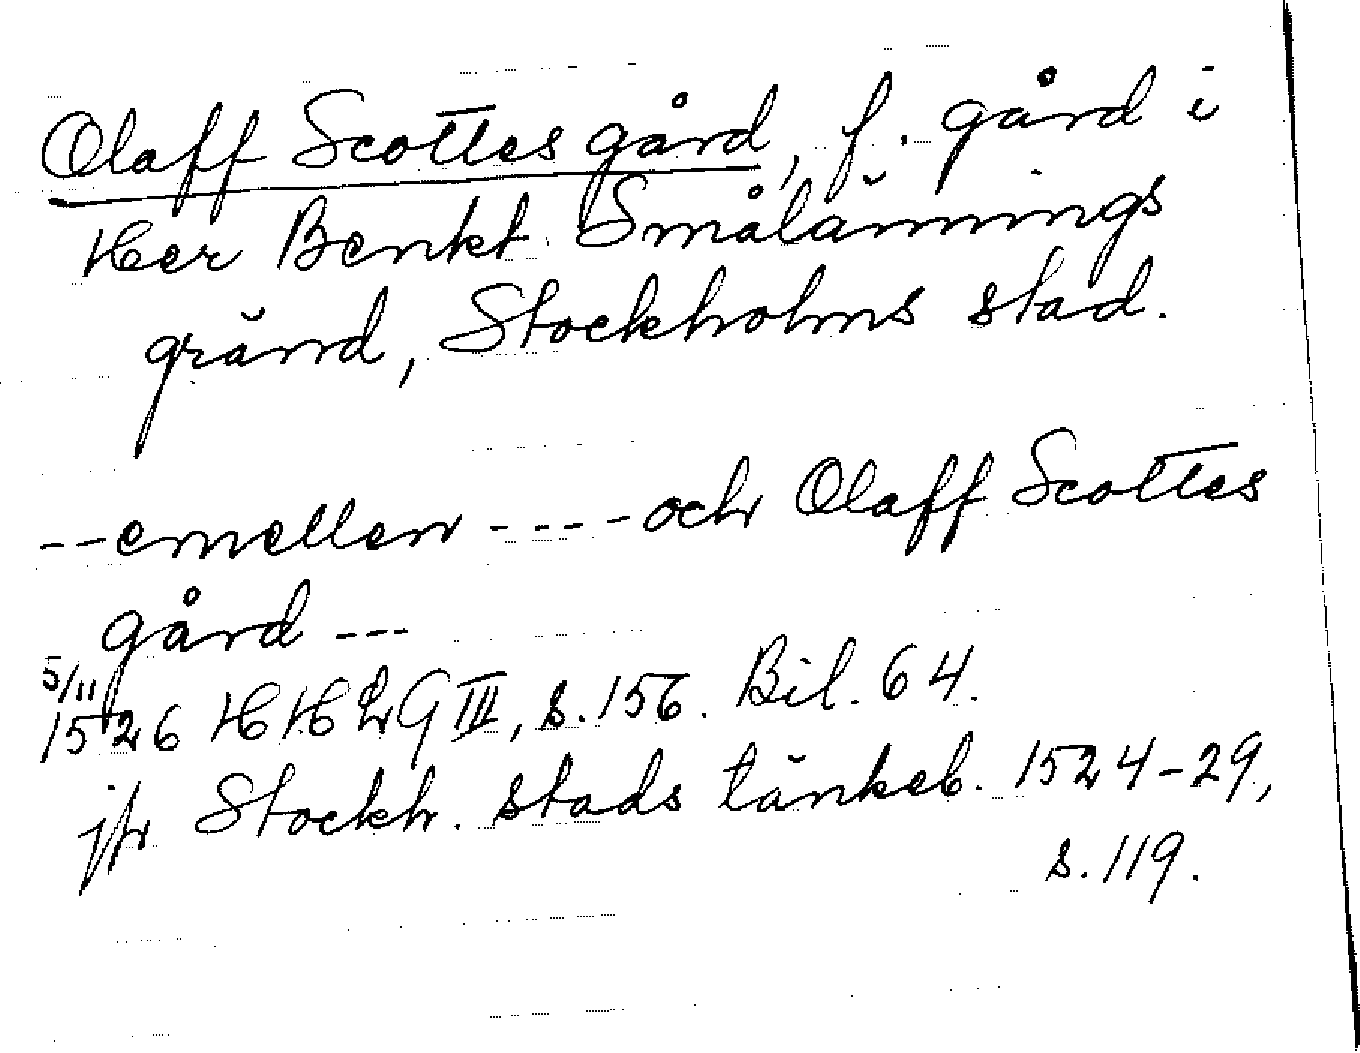 Olaff Scottes gård, f. gård i
Her Benkt Smålännings
gränd, Stockholms stad.
--emellen ----och Olaff Scottes
gård ---
5/11
1526 HHLG III, s.156. Bil. 64.
jfr Stockh. stads tänkeb. 1524-29,
s. 119.